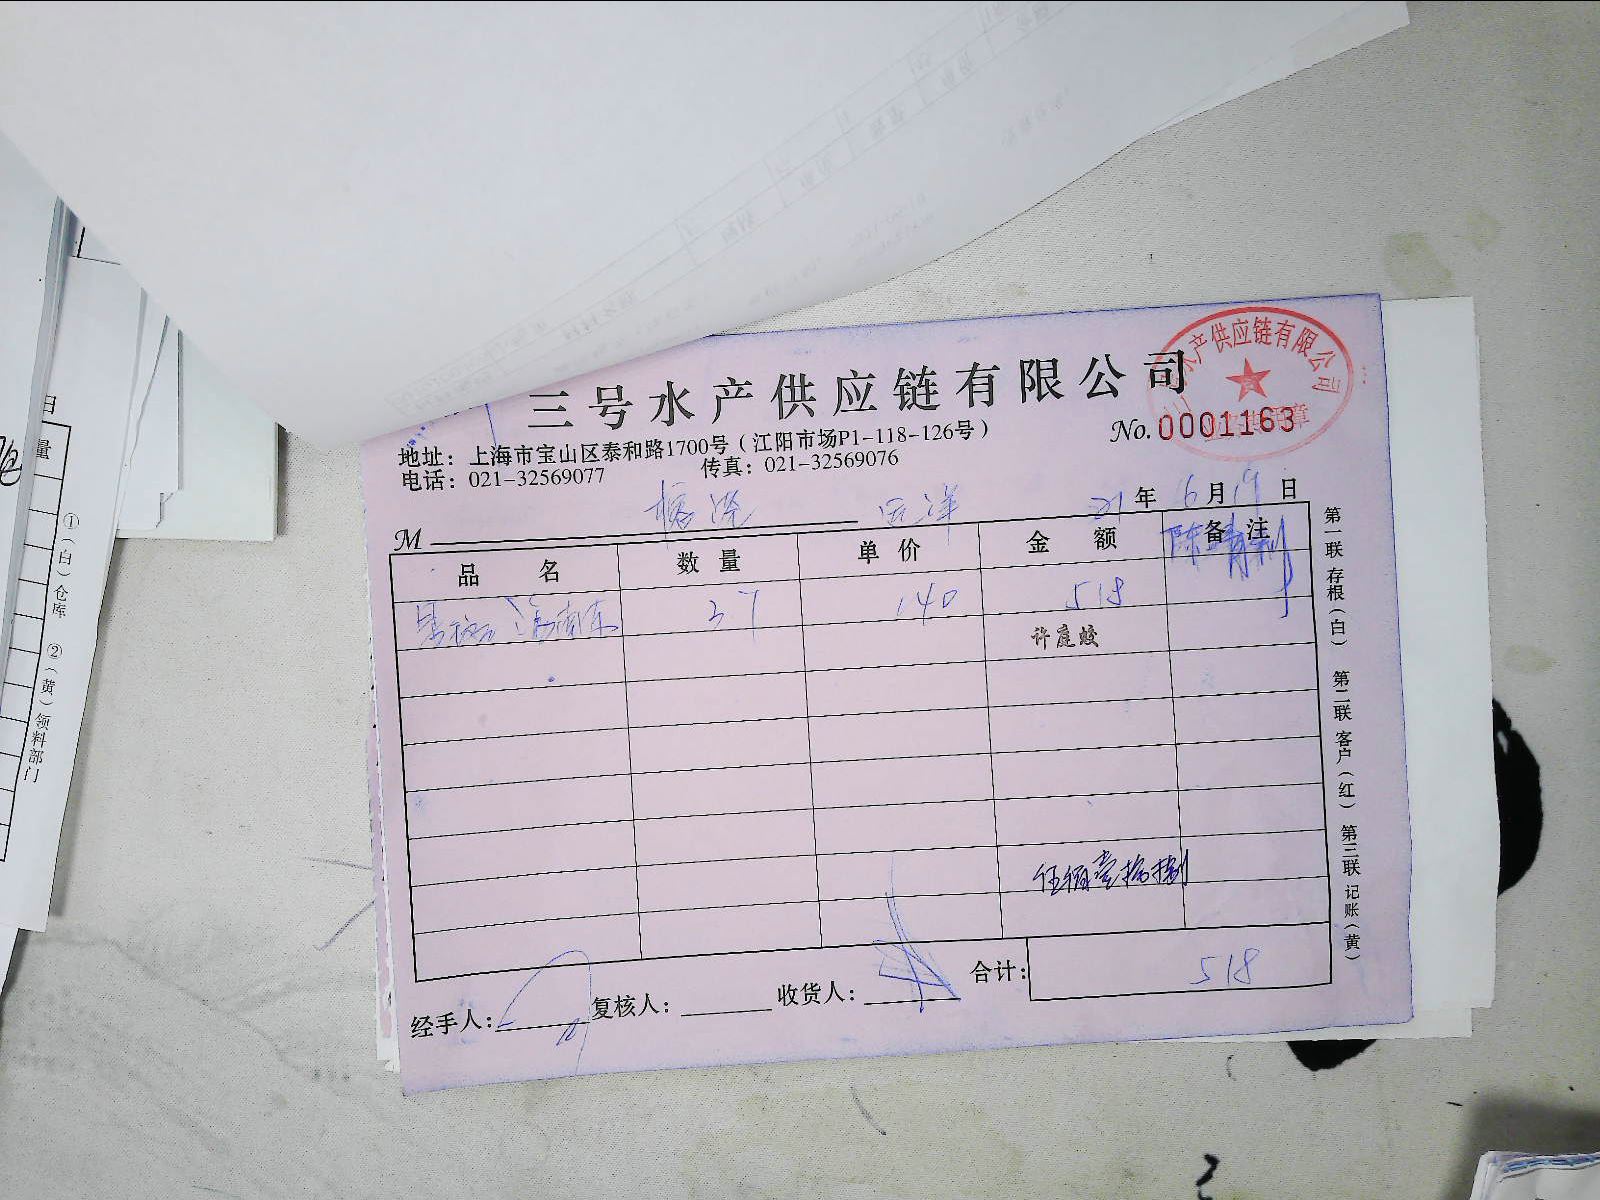 三号水产供应链有限公司
地址：上海市宝山区泰和路1700号（江阳市场P1-118-126号）
No.0001163
电话：021-32569077 传真：021-32569076
水产供应链有限公司
M
21年6月19日
品名 数量 单价 金额 备注
3.7 140 518
许庭蛟
伍佰壹拾捌
合计：518
经手人： 复核人： 收货人：
第一联 存根（白） 第二联 客户（红） 第三联 记账（黄）
日
量
①（白）仓库 ②（黄）领料部门